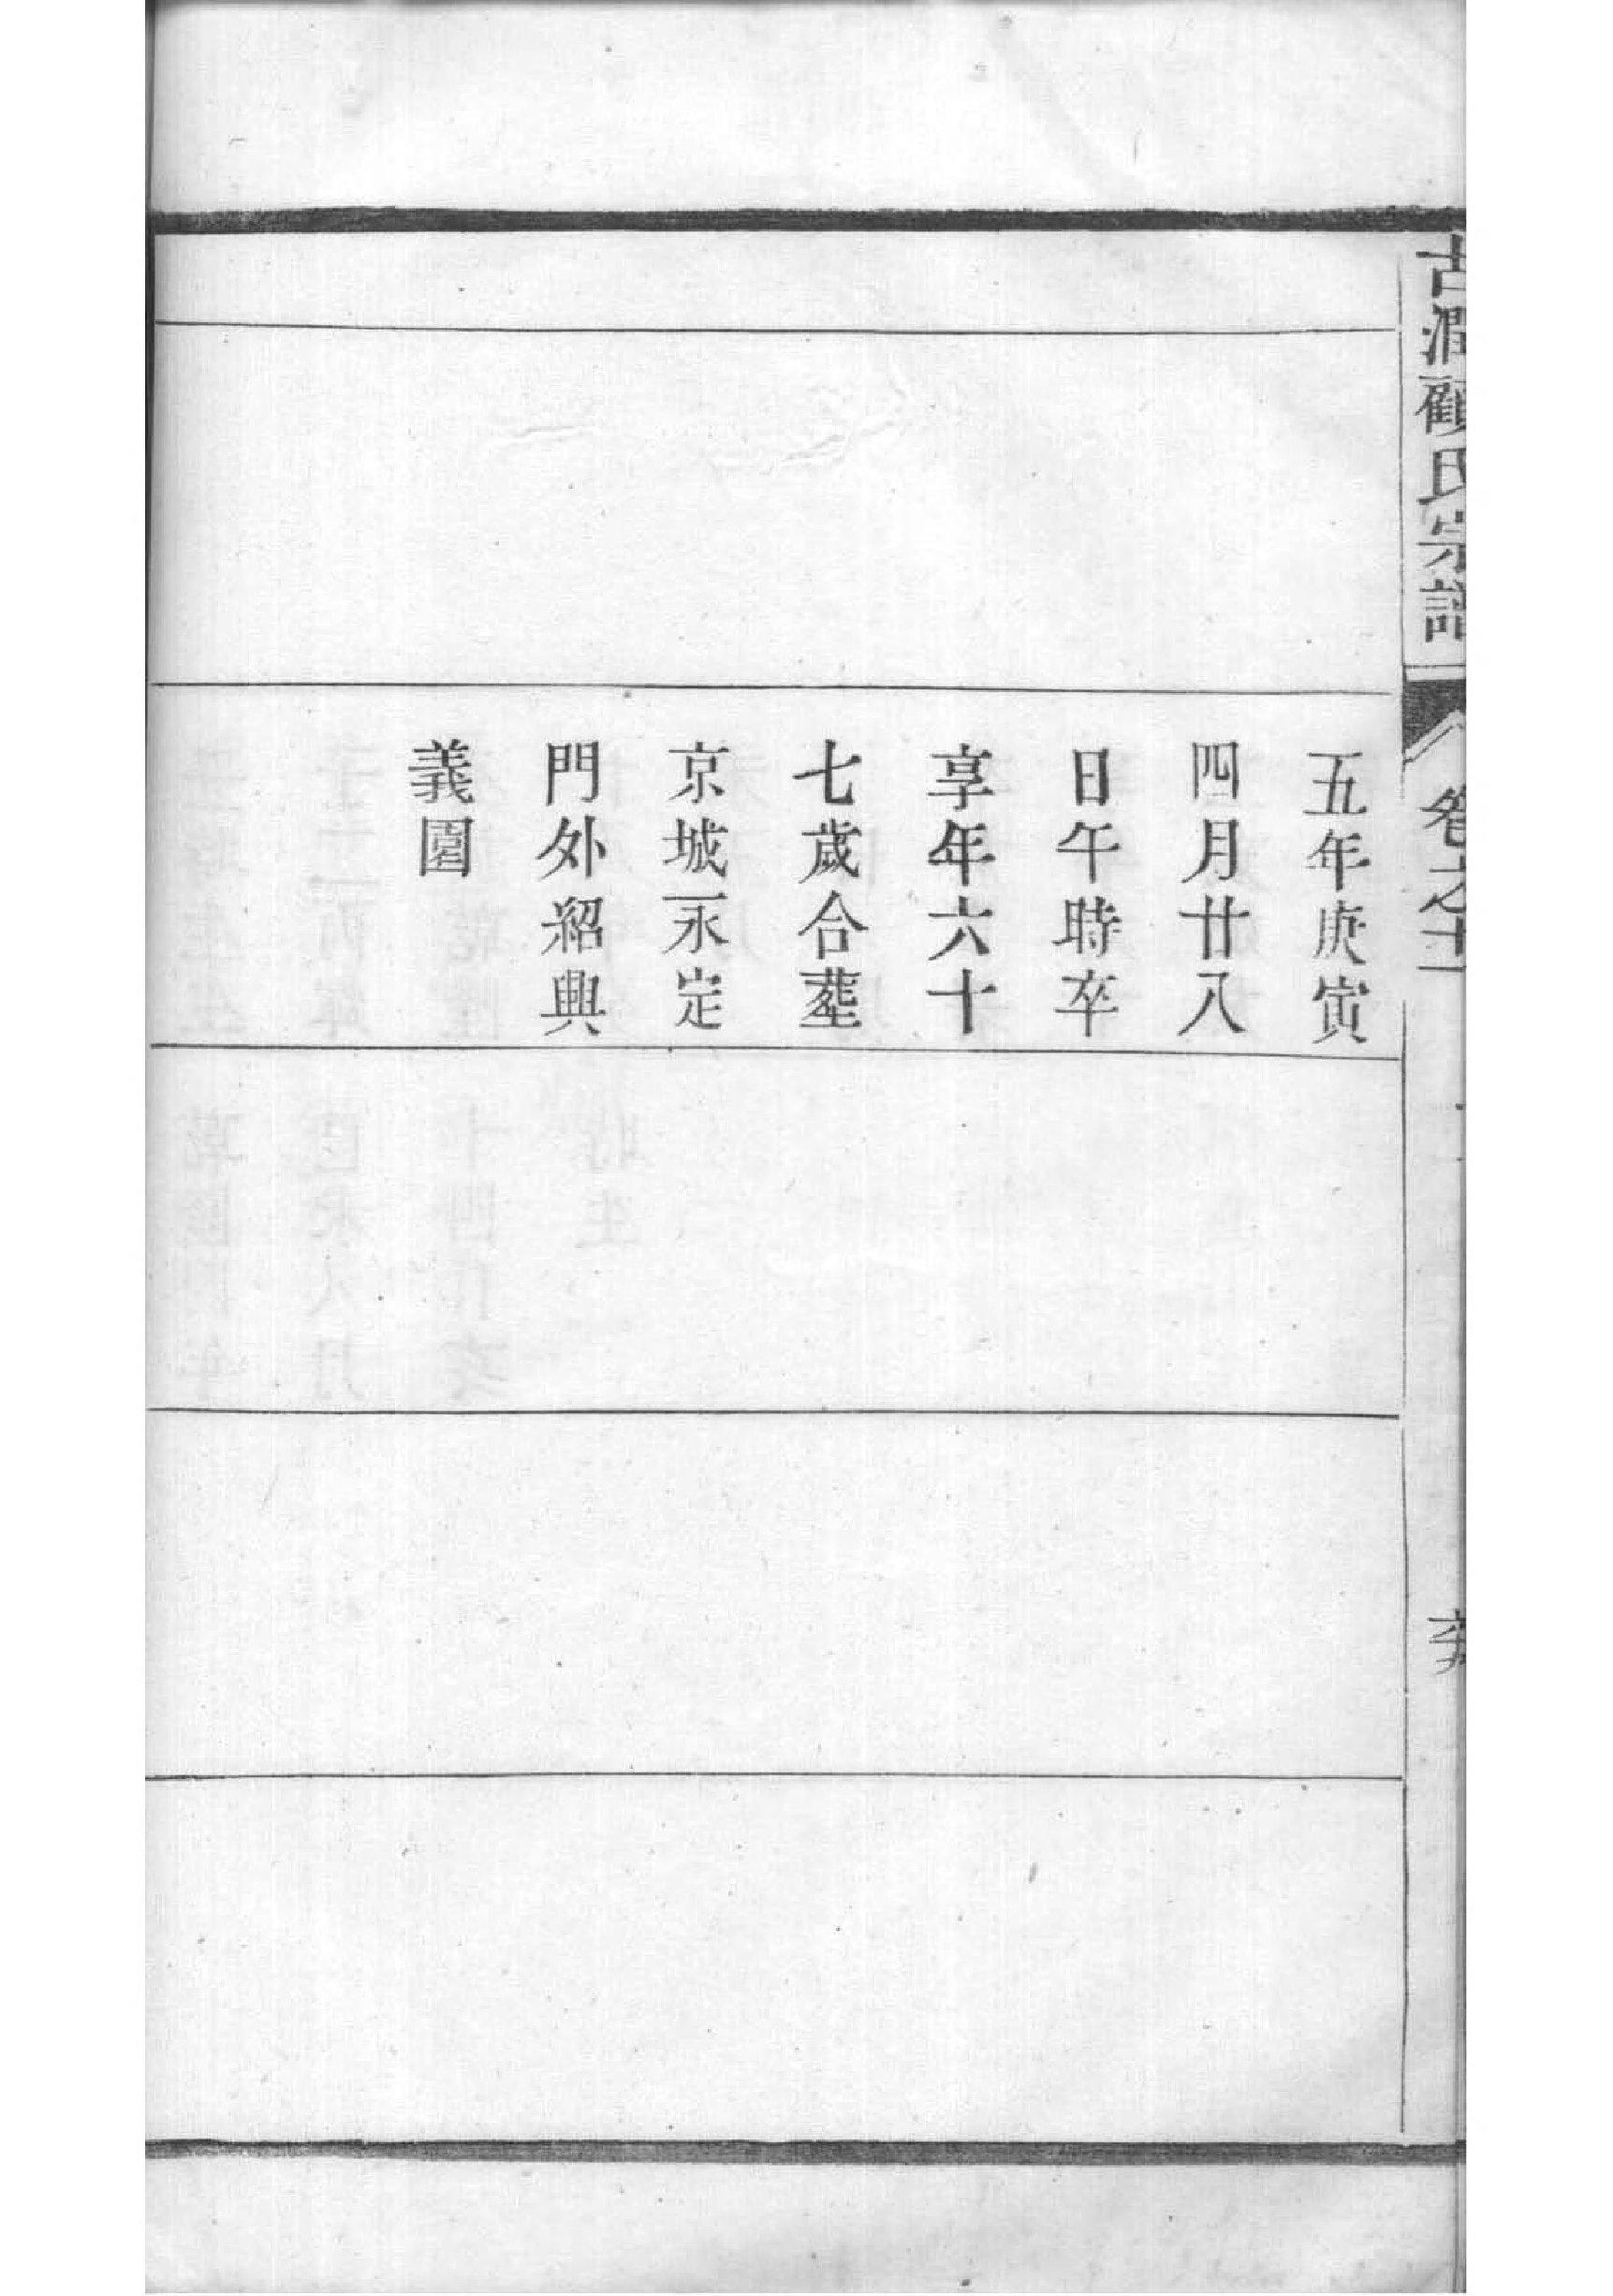 古潤顧氏宗譜
卷之十
五年庚寅
四月廿八
日午時卒
享年六十
七歲合塟
京城永定
門外紹興
義園